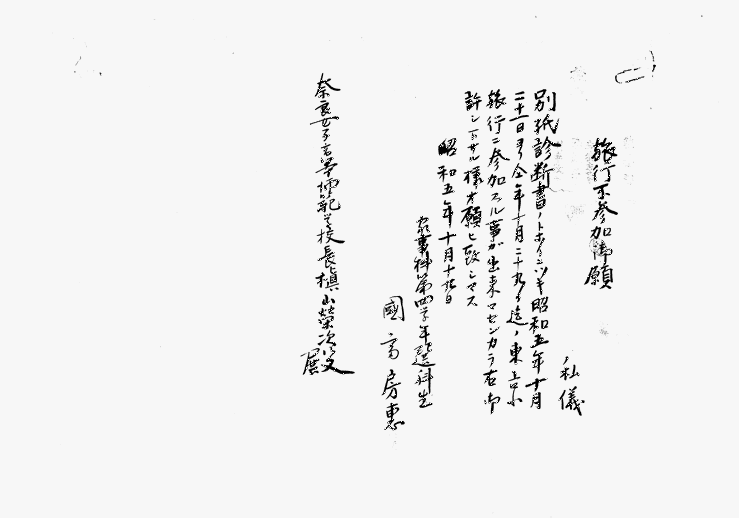 旅行不参加御願
私儀
別紙診断書ノトホリニツキ昭和五年十月
二十一日ヨリ仝年十月二十九日迄ノ東上
旅行ニ参加スル事ガ出来マセンカラ右御
許シ下サル様オ願ヒ致シマス
昭和五年十月十九日
家事科第四学年選科生
國高房惠
奈良女子高等師範学校長槇山榮次殿